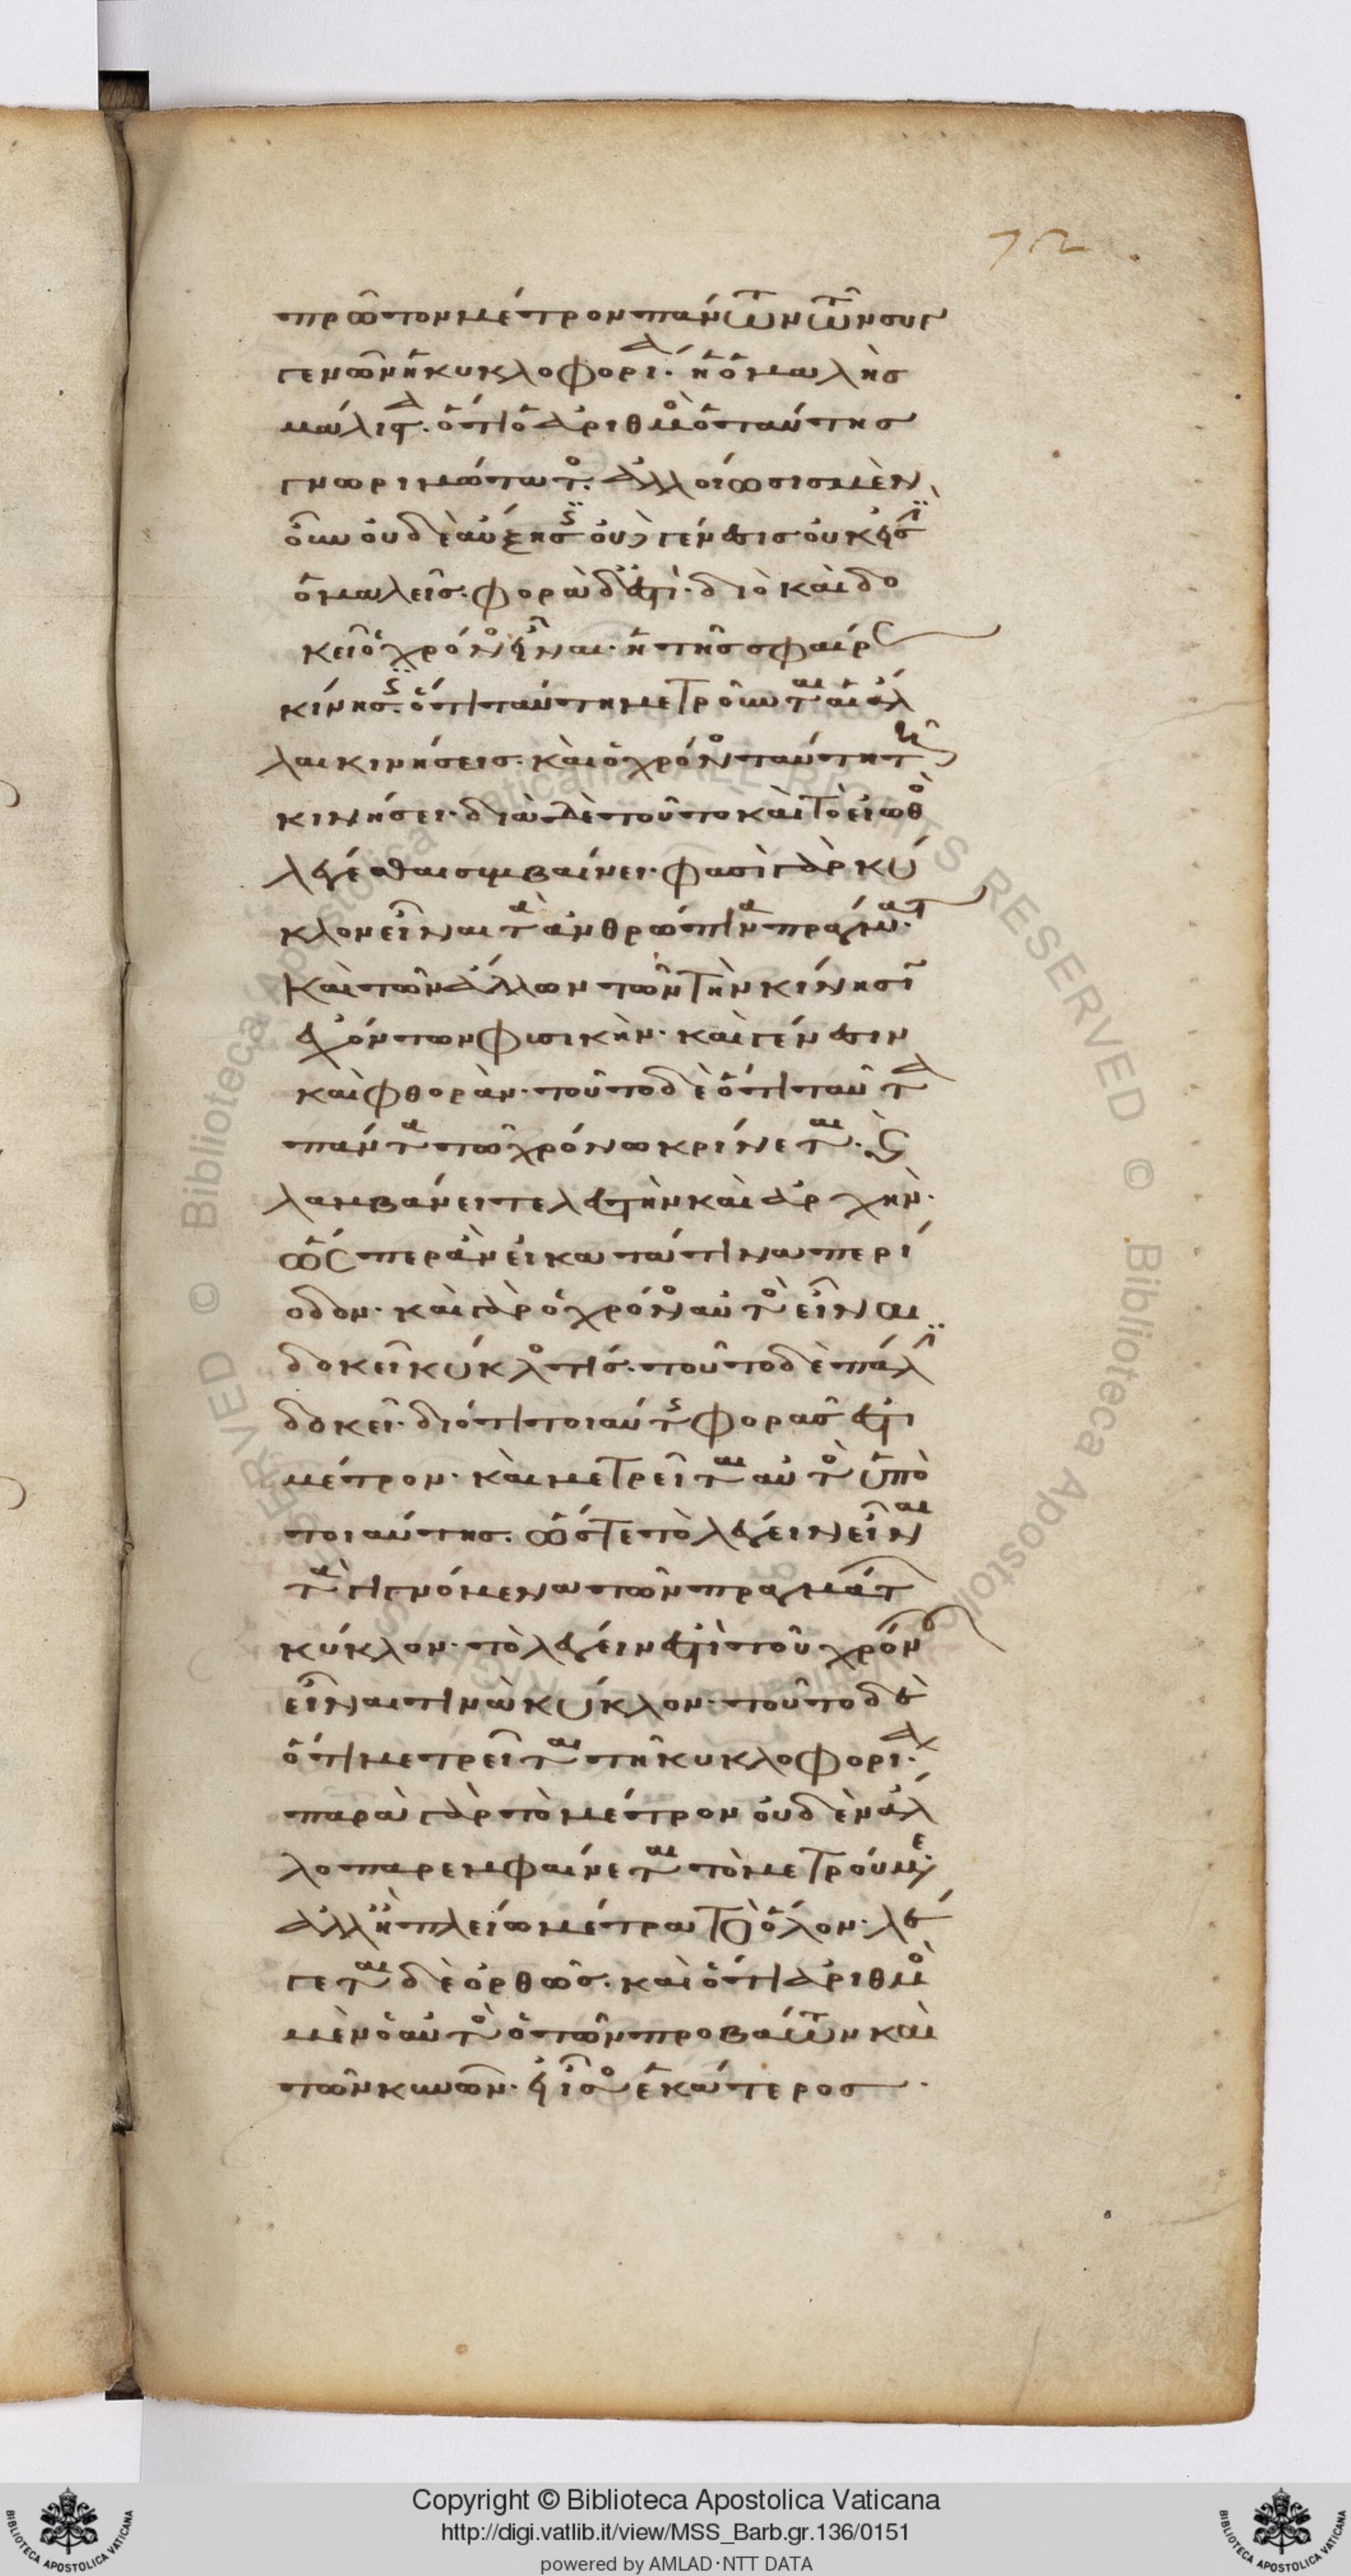 72.
πρῶτον μέτρον πάντων τῶν συγ
γενῶν ἡ κυκλοφορία ἡ ὁμαλὴς
μάλιστα. ὅτι ὁ ἀριθμὸς ὁ ταύτης
γνωριμώτατος. ἀλλοίωσις μὲν
οὖν οὐδὲ αὔξησις οὐδὲ γένεσις οὐκ εἰσὶν
ὁμαλεῖς. φορὰ δ' ἐστί. διὸ καὶ δο
κεῖ ὁ χρόνος εἶναι. ἡ τῆς σφαίρας
κίνησις. ὅτι ταύτη μετροῦνται αἱ ἄλ
λαι κινήσεις. καὶ ὁ χρόνος ταύτη τῆ
κινήσει. διὰ δὲ τοῦτο καὶ τὸ εἰωθὸς
λέγεσθαι συμβαίνει. φασὶ γὰρ κύ
κλον εἶναι τὰ ἀνθρώπινα πράγματα.
καὶ τῶν ἄλλων τῶν τὴν κίνησιν
ἐχόντων φυσικὴν. καὶ γένεσιν
καὶ φθορὰν. τοῦτο δὲ ὅτι ταῦτα
πάντα τῶ χρόνω κρίνεται. καὶ
λαμβάνει τελευτὴν καὶ ἀρχὴν.
ὥσπερ ἂν εἰ κατά τινα περί
οδον. καὶ γὰρ ὁ χρόνος αὐτὸς εἶναι
δοκεῖ κύκλος τίς. τοῦτο δὲ πάλιν
δοκεῖ. διότι τοιαύτης φορᾶς ἐστι
μέτρον. καὶ μετρεῖται αὐτὸς ὑπὸ
τοιαύτης. ὥστε τὸ λέγειν εἶναι
τὰ γιγνόμενα τῶν πραγμάτων
κύκλον. τὸ λέγειν ἐστὶ τοῦ χρόνου
εἶναι τινὰ κύκλον. τοῦτο δὲ
ὅτι μετρεῖται τῆ κυκλοφορία.
παρὰ γὰρ τὸ μέτρον οὐδὲν ἄλ
λο παρεμφαίνεται τὸ μετρούμενον.
ἀλλ' ἢ πλείω μέτρα τὸ ὅλον. λέ
γεται δὲ ὀρθῶς. καὶ ὅτι ἀριθμὸς
μὲν ὁ αὐτὸς ὁ τῶν προβάτων καὶ
τῶν κυνῶν. εἰ ἴσος ἑκάτερος.
Copyright © Biblioteca Apostolica Vaticana
http://digi.vatlib.it/view/MSS_Barb.gr.136/0151
powered by AMLAD·NTT DATA